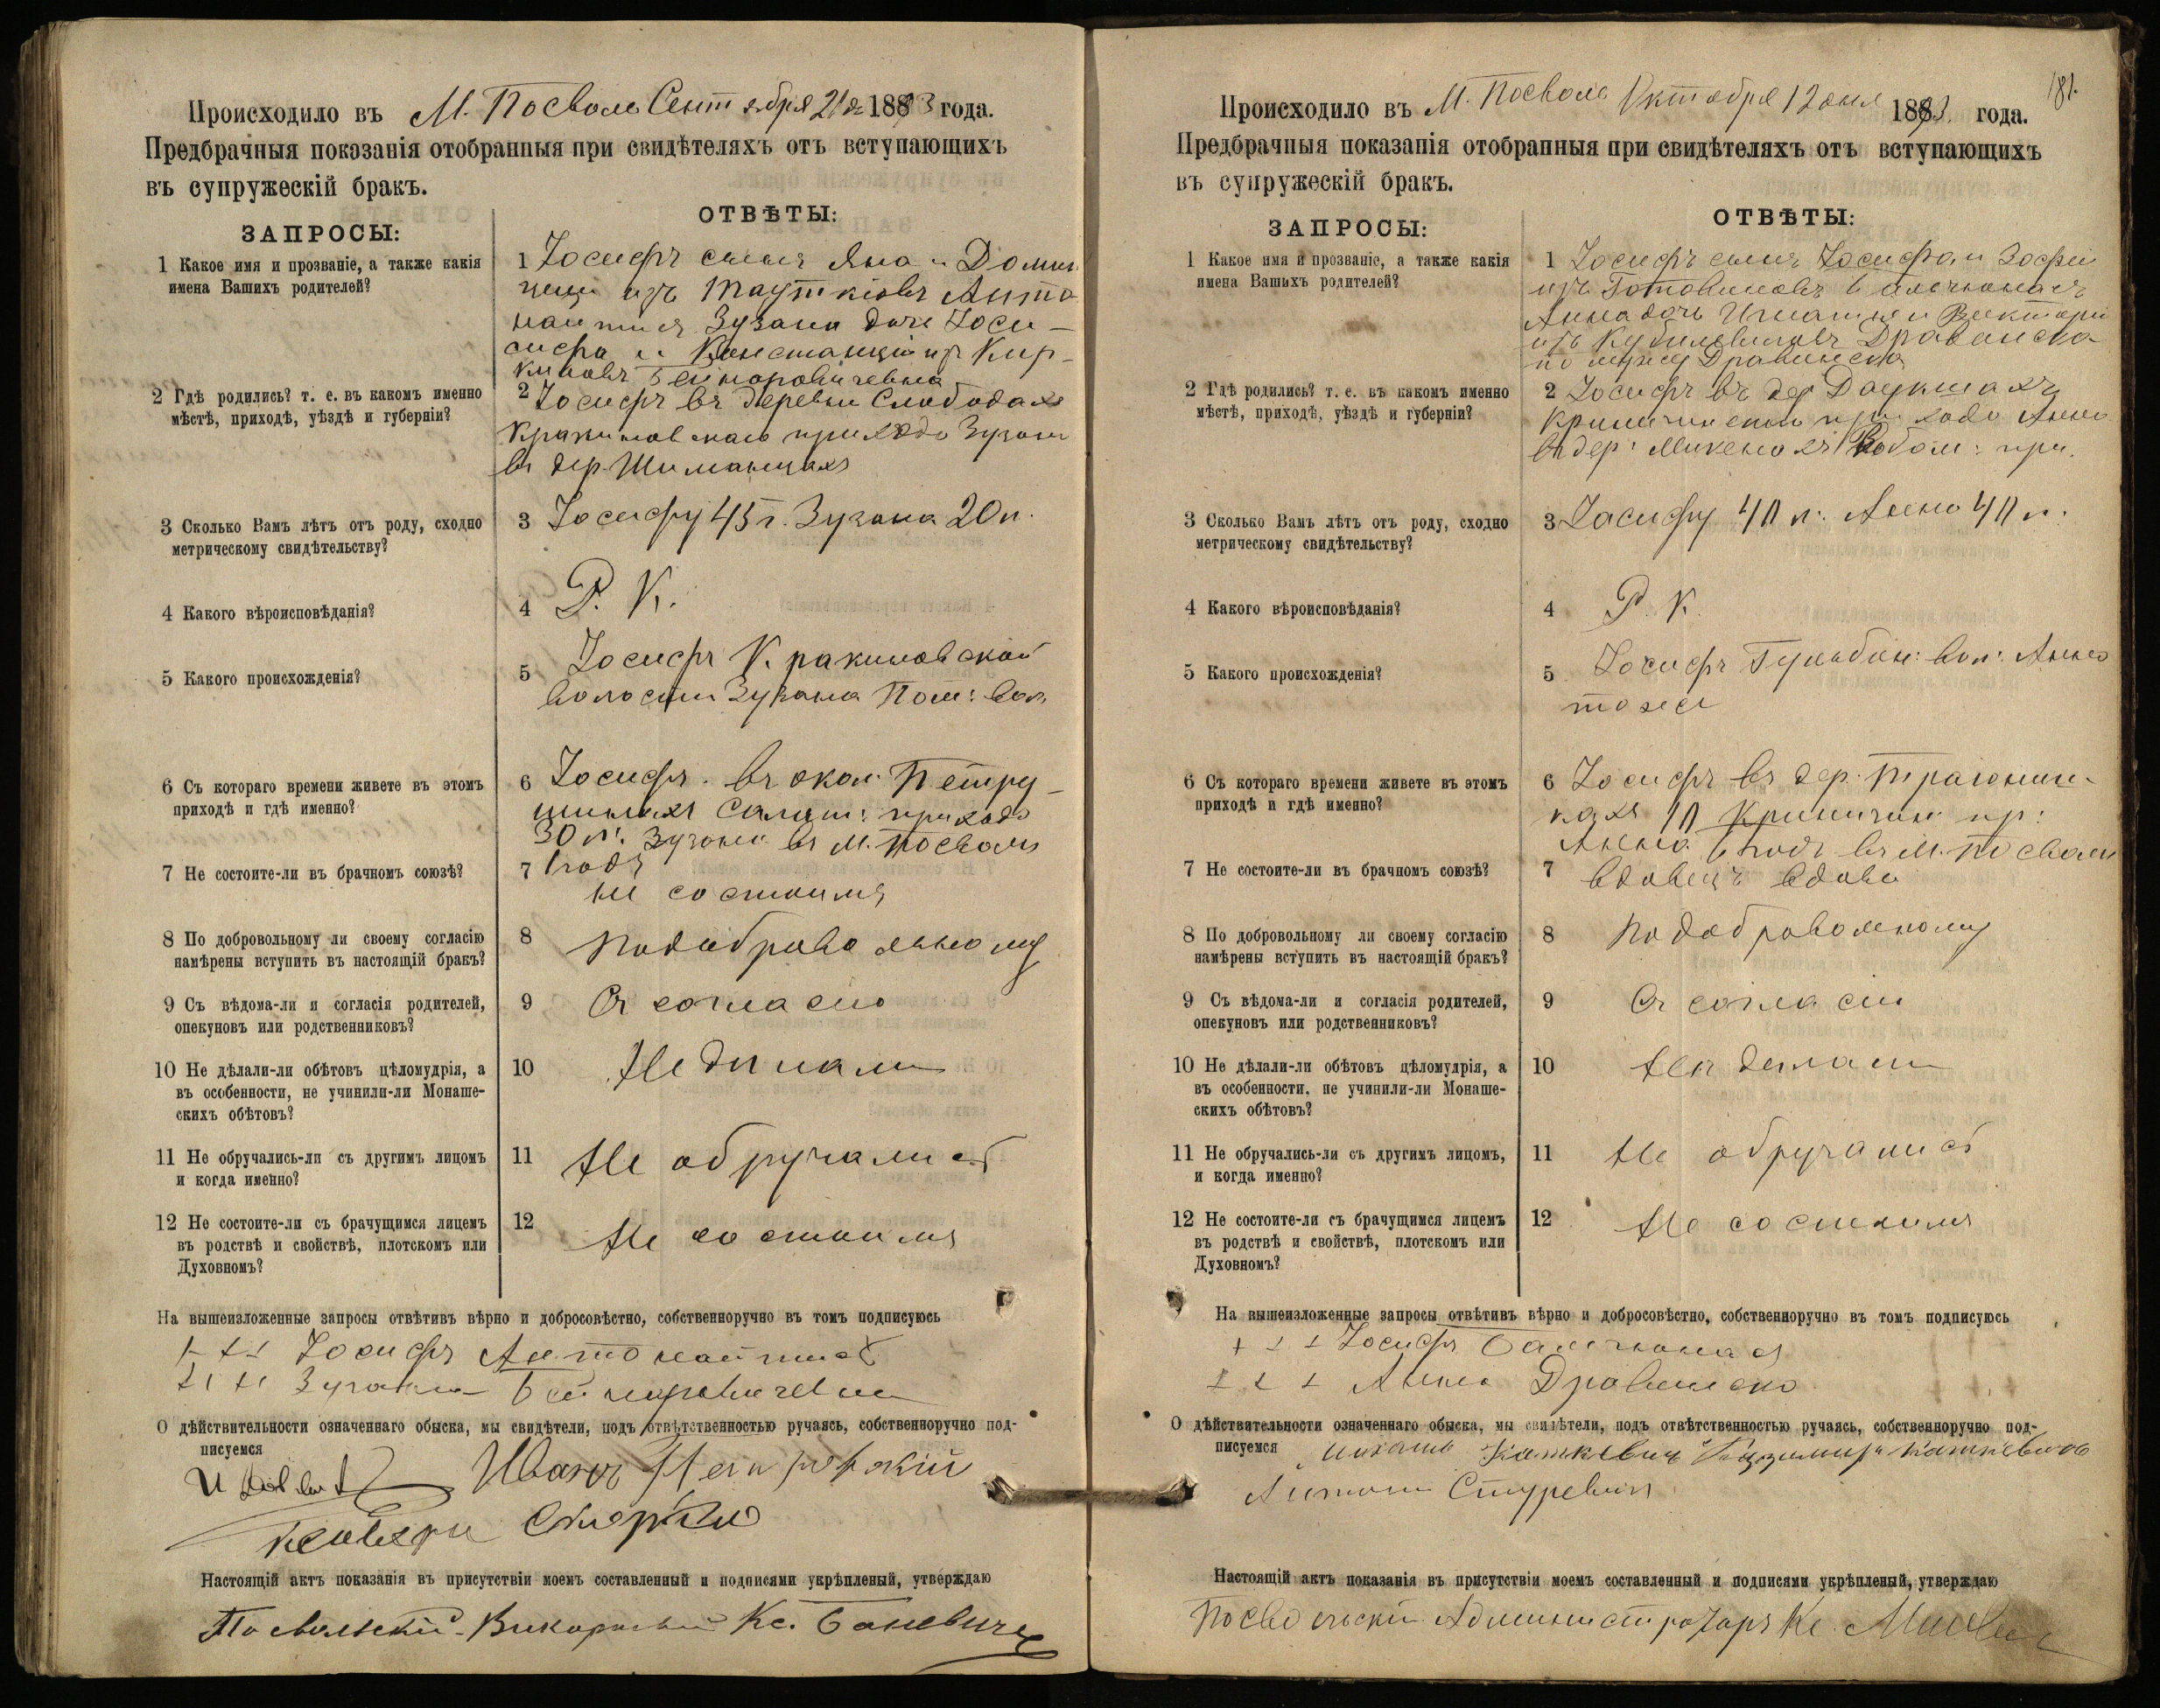 Происходило въ М. Посволь Сентября 21 д 1893 года.
Предбрачныя показанія отобранныя при свидѣтеляхъ отъ вступающихъ
въ супружескій бракъ.
ЗАПРОСЫ:
ОТВѢТЫ:
1 Какое имя и прозваніе, а также какія
имена Вашихъ родителей?
1 Іосифъ сынъ Яна и Домин
цели изъ Тауткіовъ Анто
найтисъ Зузана дочь Іоси-
сифа и Констанціи изъ Кир-
киловъ
2 Гдѣ родились? т. е. въ какомъ именно
мѣстѣ, приходѣ, уѣздѣ и губерніи?
2 Іосифъ въ деревни Слободахъ
Кракиновскаго прихода Зузана
въ дер. Шиманцахъ
3 Сколько Вамъ лѣтъ отъ роду, сходно
метрическому свидѣтельству?
3 Іосифу 45 г. Зузана 20 л.
4 Какого вѣроисповѣданія?
4 Р. К.
5 Какого происхожденія?
5 Іосифъ Кракиновской
волости Зузана Пом: вол
6 Съ котораго времени живете въ этомъ
приходѣ и гдѣ именно?
6 Іосифъ. въ окол: Петру-
шилихъ Салат: прихода
30 л: Зузана въ М. Посволи
7 Не состоите-ли въ брачномъ союзѣ?
7 1 годъ
не состоимъ
8 По добровольному ли своему согласію
намѣрены вступить въ настоящій бракъ?
8 По добравольному
9 Съ вѣдома-ли и согласія родителей,
опекуновъ или родственниковъ?
9 Съ согласію
10 Не дѣлали-ли обѣтовъ цѣломудрія, а
въ особенности, не учинили-ли Монаше-
скихъ обѣтовъ?
10 Не дилали
11 Не обручались-ли съ другимъ лицомъ
и когда именно?
11 Не обручались
12 Не состоите-ли съ брачущимся лицемъ
въ родствѣ и свойствѣ, плотскомъ или
Духовномъ?
12 Не состоимъ
На вышеизложенные запросы отвѣтивъ вѣрно и добросовѣстно, собственноручно въ томъ подписуюсь
+++ Іосифъ Антонайтис
+++ Зузанна
О дѣйствительности означеннаго обыска, мы свидѣтели, подъ отвѣтственностью ручаясь, собственноручно под-
писуемся
Иванъ
Настоящій актъ показанія въ присутствіи моемъ составленный и подписями укрѣпленый, утверждаю
Посвольскій Викарный Кс. Баневичъ
181.
Происходило въ М. Посволь Октября 12 дня 1893. года.
Предбрачныя показанія отобранныя при свидѣтеляхъ отъ вступающихъ
въ супружескій бракъ.
ЗАПРОСЫ:
ОТВѢТЫ:
1 Какое имя и прозваніе, а также какія
имена Вашихъ родителей?
1 Іосифъ сынъ Іосифа и Зофіи
изъ Готовиловъ
Анна дочь Игнатія и Викторіи
изъ Кубилевичовъ Дравинска
по мужу Дравинска
2 Гдѣ родились? т. е. въ какомъ именно
мѣстѣ, приходѣ, уѣздѣ и губерніи?
2 Іосифъ въ дер Даукшахъ
Криничинскаго прихода Анна
въ дер: Микенахъ при.
3 Сколько Вамъ лѣтъ отъ роду, сходно
метрическому свидѣтельству?
3 Іосифу 40 л: Анна 40 л.
4 Какого вѣроисповѣданія?
4 Р. К.
5 Какого происхожденія?
5. Іосифъ Гульбин: вол: Анна
тоже
6 Съ котораго времени живете въ этомъ
приходѣ и гдѣ именно?
6 Іосифъ въ дер.
10 Криничин пр:
Анна годъ въ М. Посволи
7 Не состоите-ли въ брачномъ союзѣ?
7 вдовецъ вдова
8 По добровольному ли своему согласію
намѣрены вступить въ настоящій бракъ?
8 По добровольному
9 Съ вѣдома-ли и согласія родителей,
опекуновъ или родственниковъ?
9 Съ согласія
10 Не дѣлали-ли обѣтовъ цѣломудрія, а
въ особенности, не учинили-ли Монаше-
скихъ обѣтовъ?
10 Не делали
11 Не обручались-ли съ другимъ лицомъ,
и когда именно?
11 Не обручались
12 Не состоите-ли съ брачущимся лицемъ
въ родствѣ и свойствѣ, плотскомъ или
Духовномъ?
12 Не состоимъ
На вышеизложенные запросы отвѣтивъ вѣрно и добросовѣстно, собственноручно въ томъ подписуюсь
+++ Іосифъ Бальчюнас
+++ Анна Дравинска
О дѣйствительности означеннаго обыска, мы свидѣтели, подъ отвѣтственностью ручаясь, собственноручно под-
писуемся Михаль Каткевичъ Казимиръ Каткевичъ
Антони Стуревичъ
Настоящій актъ показанія въ присутствіи моемъ составленный и подписями укрѣпленый, утверждаю
Посвольскій Администраторъ Кс.